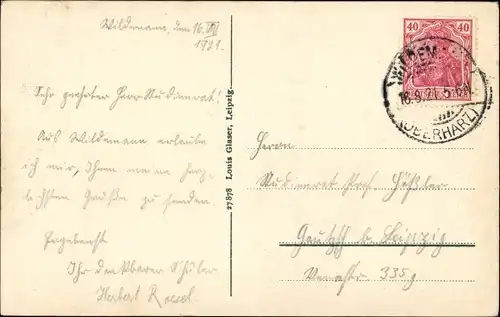 Wildemann, den 16. VIII
1921.
Sehr geehrter Herr Studienrat!
Aus Wildemann erlaube
ich mir, Ihnen meine herz-
lichsten Grüße zu senden.
Ergebenst
Ihr dankbarer Schüler
Herbert
27878 Louis Glaser, Leipzig.
40 40
WILDEM
16.8.21. 5-6N
(OBERHARZ)
Herrn
Studienrat Prof. Häßler
Gautzsch b. Leipzig
335